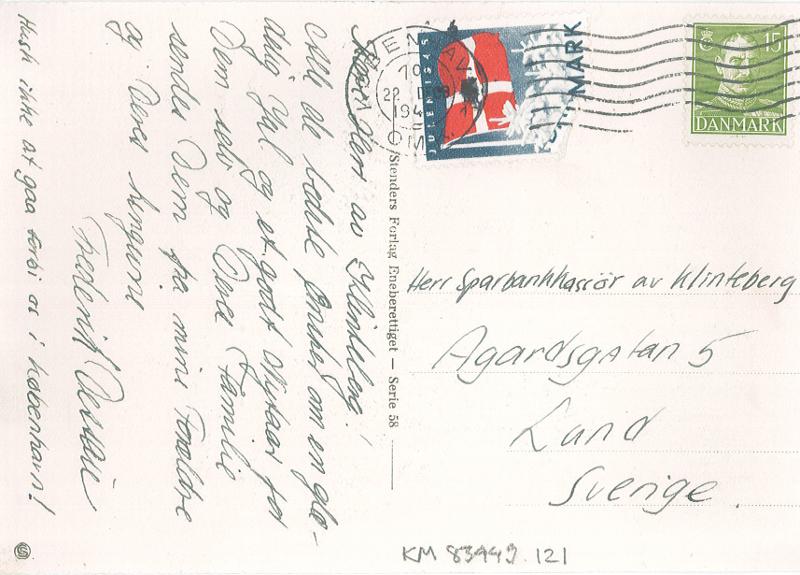 Kære Herr av Klinteberg!
Alle de bedste Ønsker om en glæ-
delig Jul og et godt Nytaar for
Dem selv og Deres Familie
sendes Dem fra mine Forældre
og Deres hengivne
Frederik
Husk ikke at gaa forbi os i København!
Stenders Forlag Eneberettiget — Serie 58
JULEN 1945
DANMARK
15
DANMARK
Herr Sparbankkassör av Klinteberg
Agardsgatan 5
Lund
Sverige.
KM 83449.121